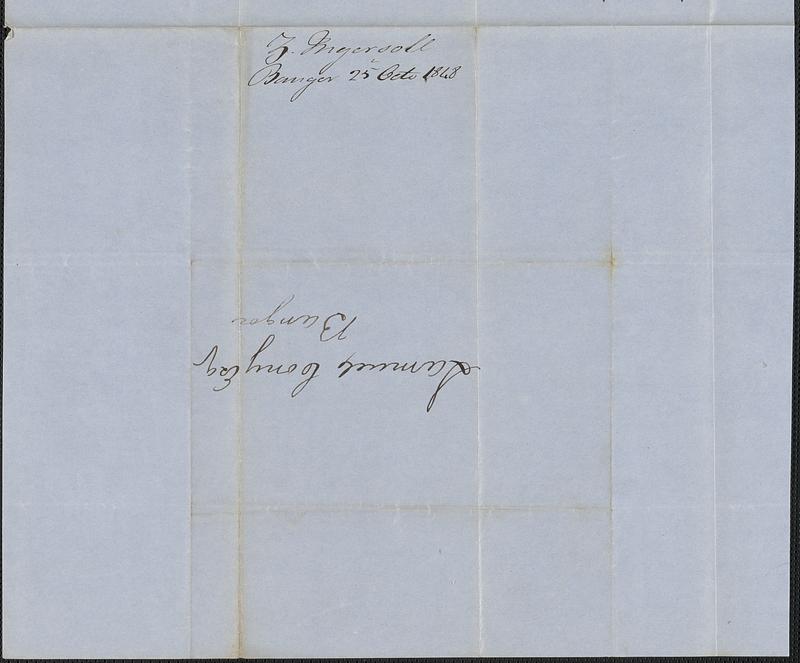 Z. Ingersoll
Bangor 25 Octo 1848
Samuel Cony Esq
Bangor